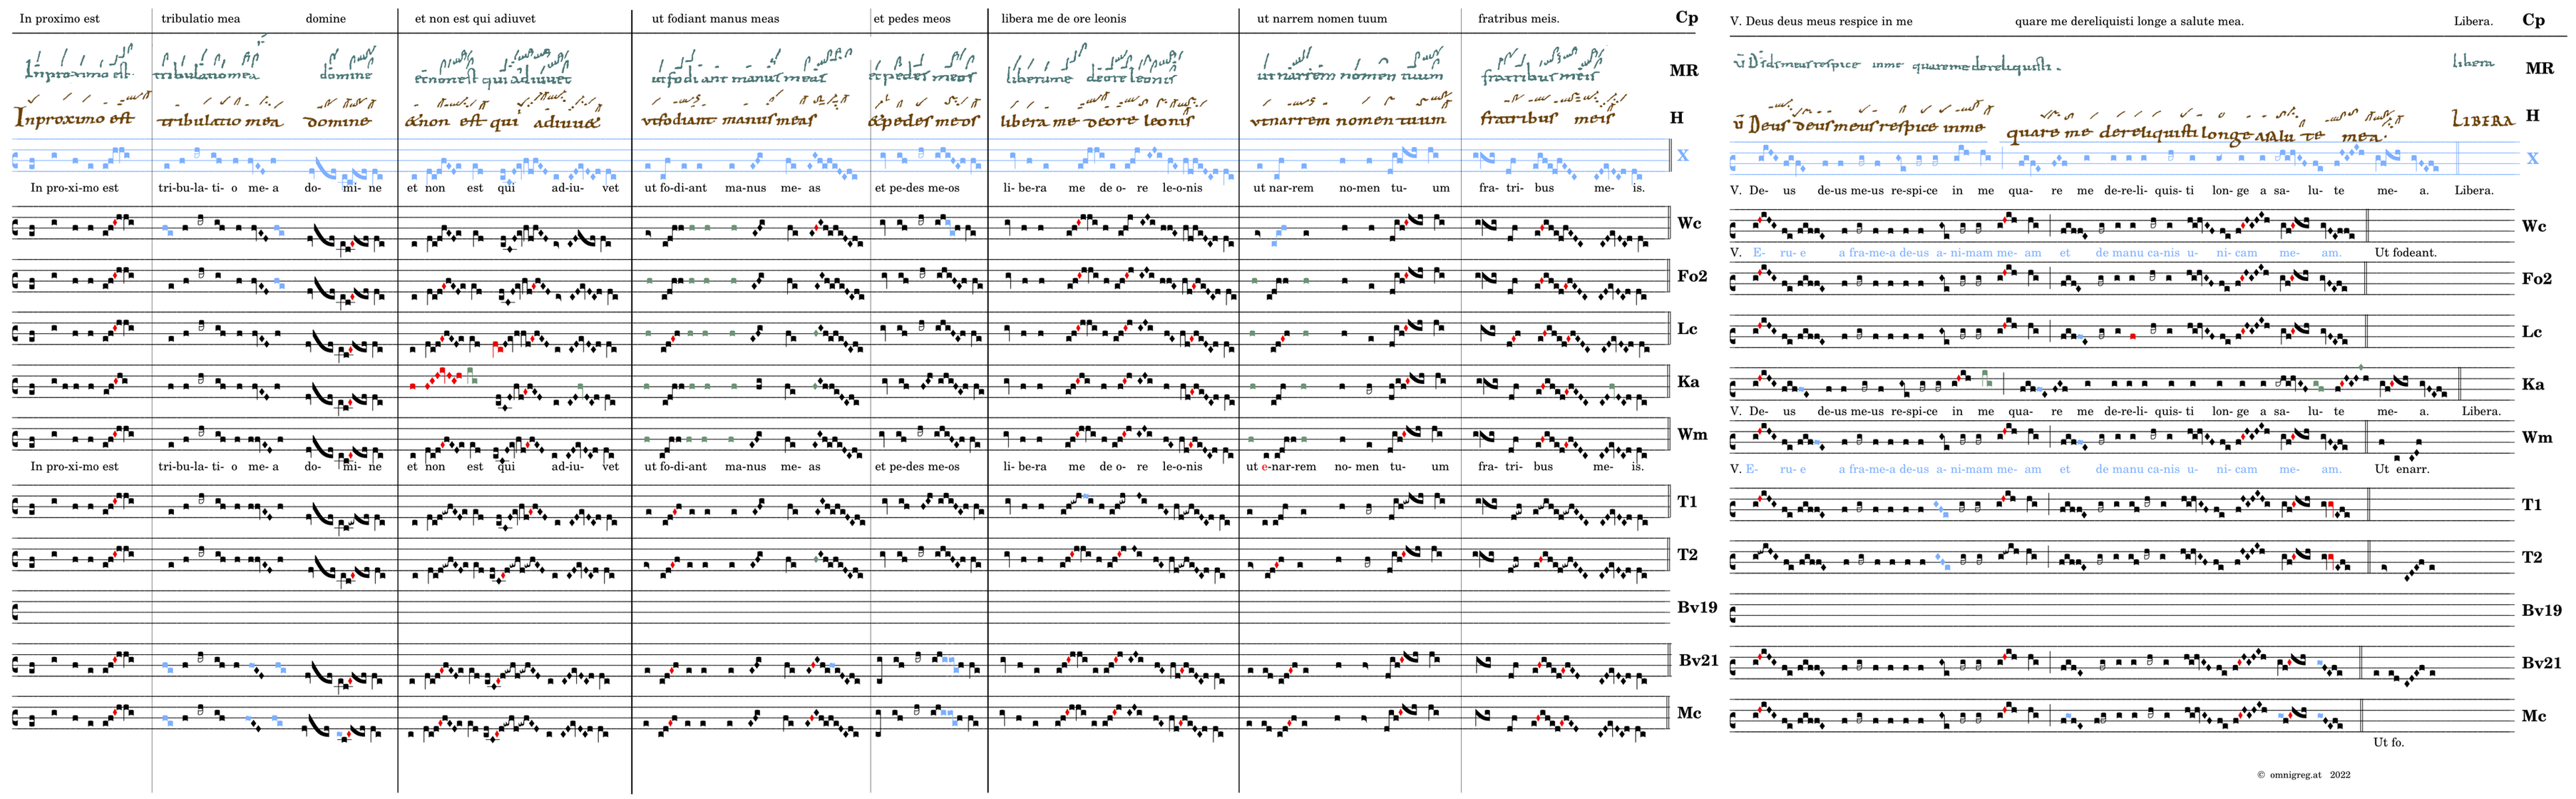 In proximo est tribulatio mea domine et non est qui adiuvet ut fodiant manus meas et pedes meos libera me de ore leonis ut narrem nomen tuum fratribus meis. Cp
Inproximo est tribulatio mea domine et non est qui adiuuet ut fodiant manus meas et pedes meos libera me de ore leonis ut narrem nomen tuum fratribus meis MR
Inproximo est tribulatio mea domine &non est qui adiuu& utfodiant manus meas &pedes meos libera me deore leonis utnarrem nomen tuum fratribus meis H
X
In pro-xi-mo est tri-bu-la- ti- o me- a do- mi- ne et non est qui ad-iu- vet ut fo-di-a ma-nus me- as et pe-des me-os li- be-ra me de o- re le-o-nis ut nar-rem no-men tu- um fra- tri- bus me- is.
Wc
Fo2
Lc
Ka
Wm
In pro-xi-mo est tri-bu-la- ti- o me- a do- mi- ne et non est qui ad-iu- vet ut fo-di-ant ma-nus me- as et pe-des me-os li- be-ra me de o- re le-o-nis ut e-nar-rem no- men tu- um fra- tri- bus me- is.
T1
T2
Bv19
Bv21
Mc
V. Deus deus meus respice in me quare me dereliquisti longe a salute mea. Libera. Cp
respice inme quaremedereliquisti. libera MR
Deus deusmeusrespice inme quare me dereliquisti longe asalu te mea. LIBERA H
X
V. De- us de-us me-us re-spi-ce in me qua- re me de-re-li- quis- ti lon- ge a sa- lu- te me- a. Libera.
Wc
V. E- ru- e a fra-me-a de-us a- ni-mam me- am et de manu ca-nis u- ni- cam me- am. Ut fodeant.
Fo2
Lc
Ka
V. De- us de-us me-us re-spi-ce in me qua- re me de-re-li- quis- ti lon- ge a sa- lu- te me- a. Libera.
Wm
V. E- ru- e a fra-me-a de-us a- ni-mam me- am et de manu ca-nis u- ni- cam me- am. Ut enarr.
T1
T2
Bv19
Bv21
Mc
Ut fo.
© omnigreg.at 2022